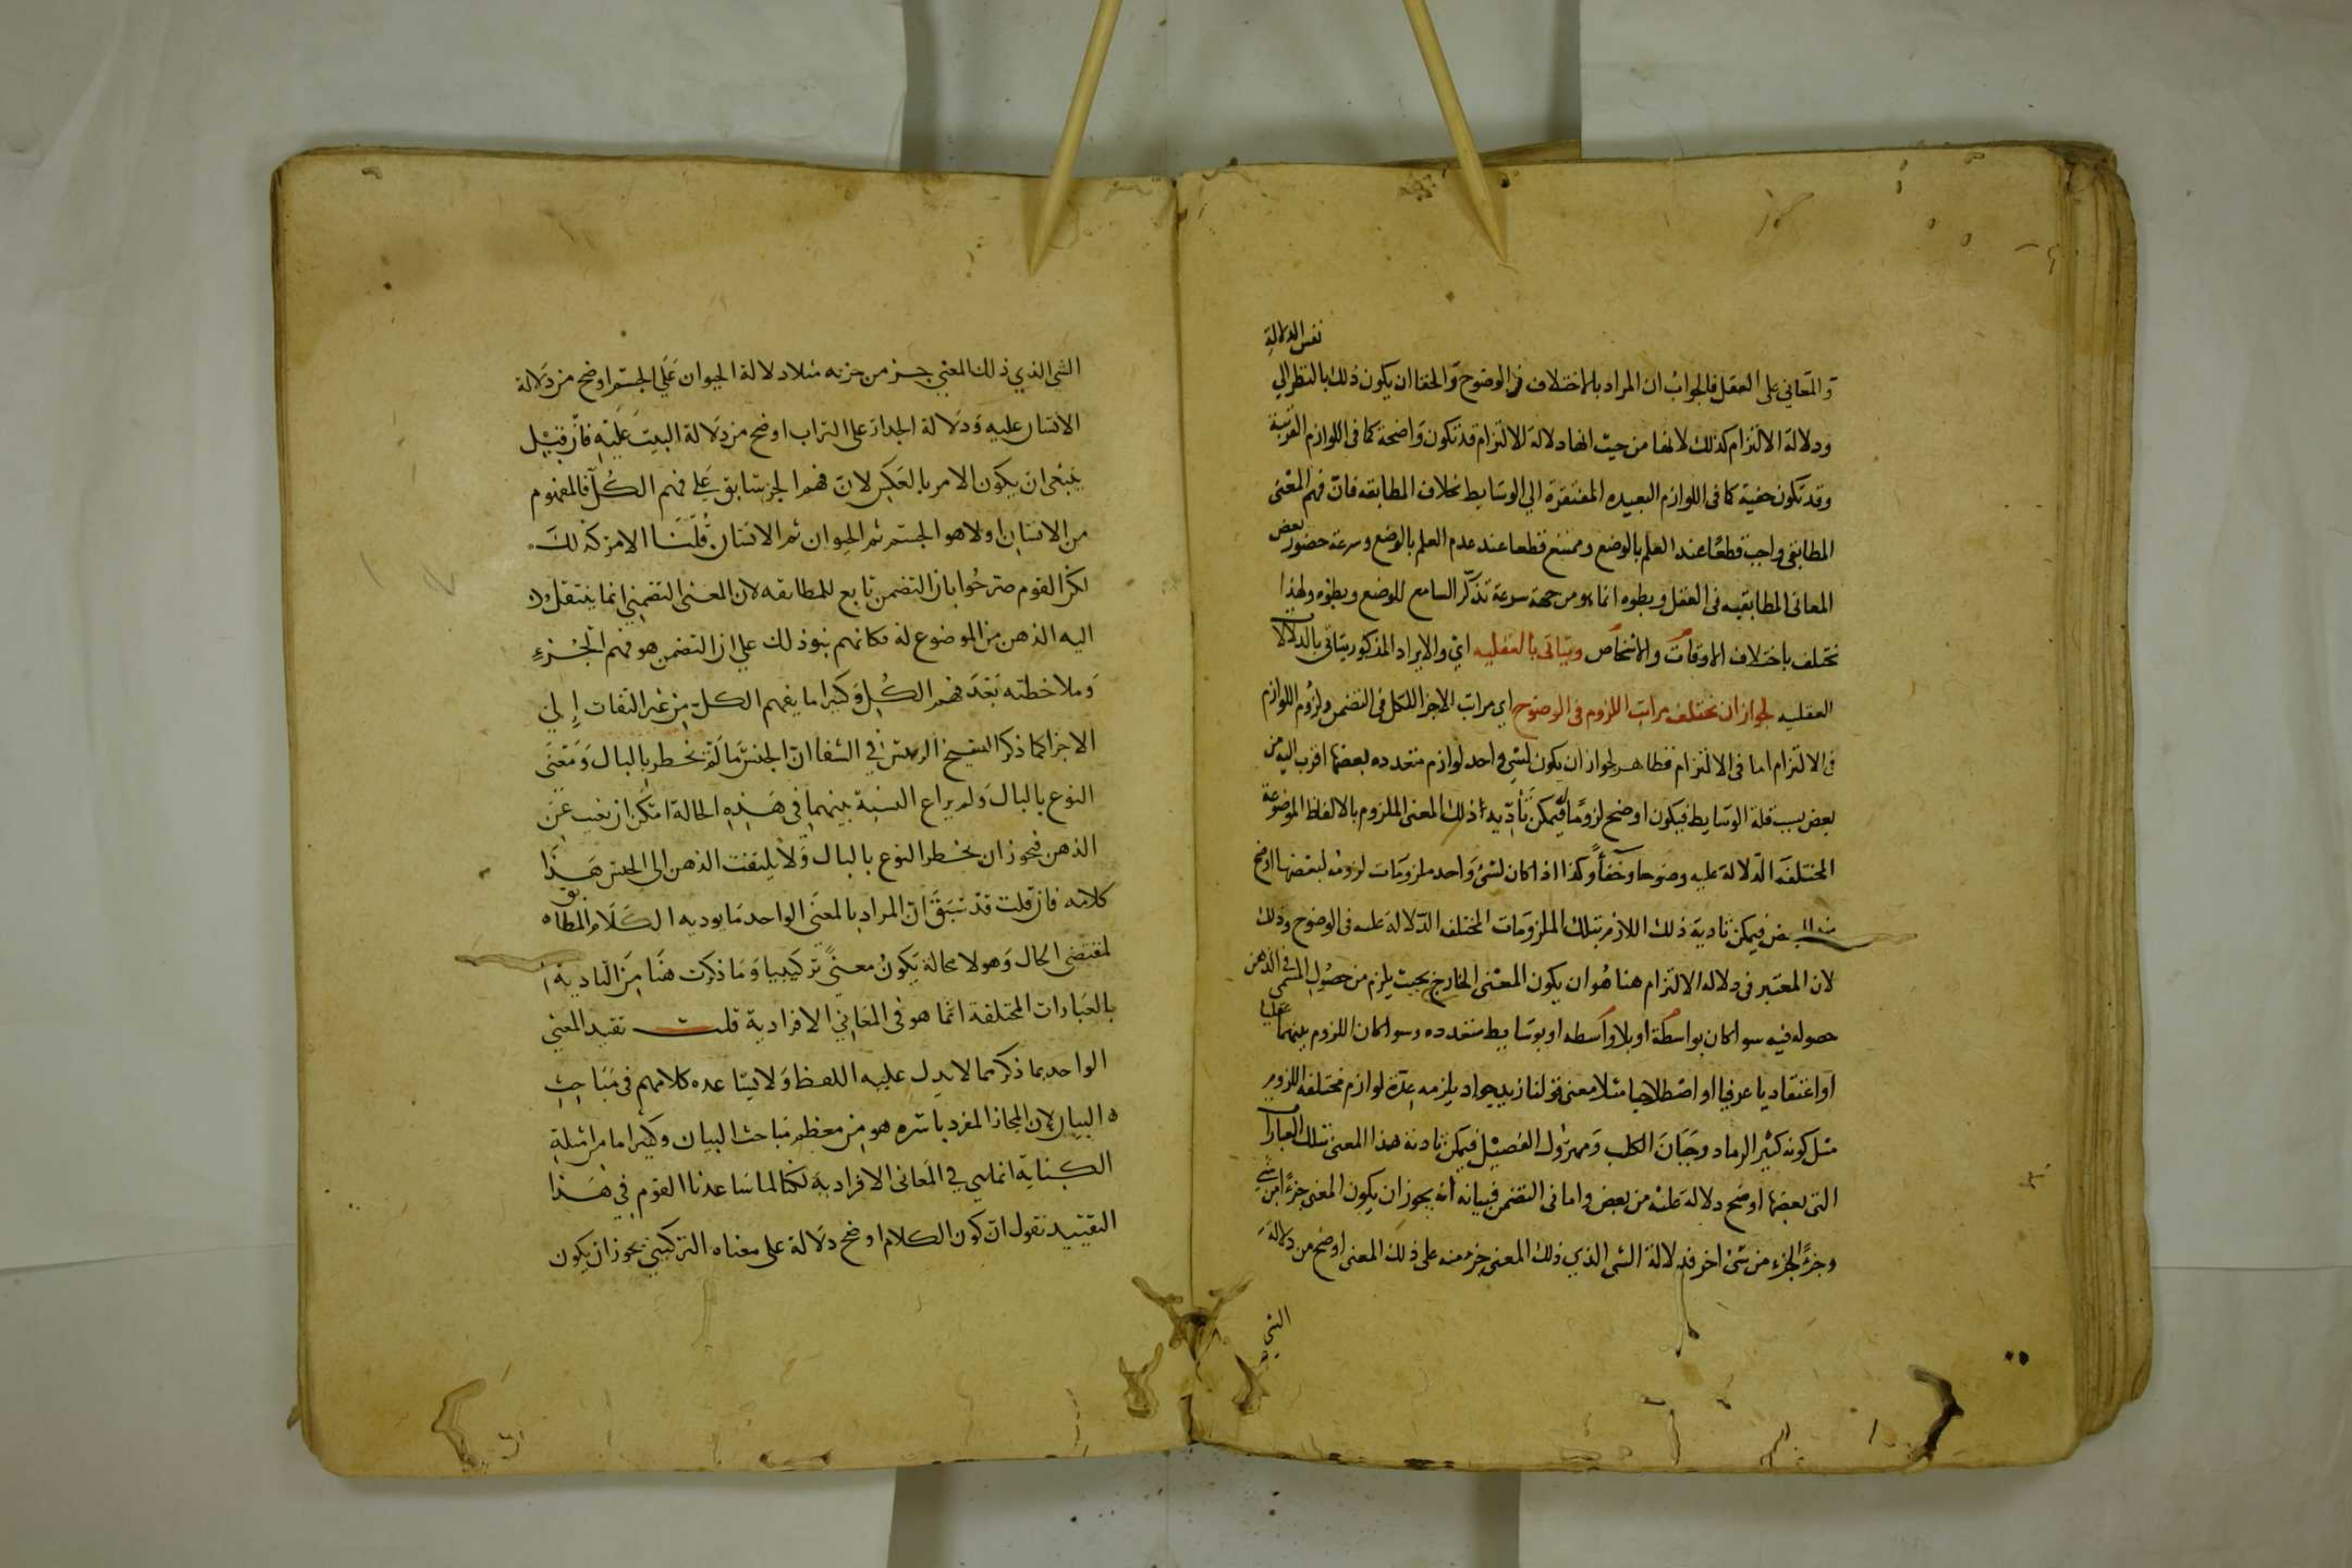 نفس الدلالة
والمعاني على العقل فالجواب ان المراد بالاختلاف في الوضوح والخفا ان يكون ذلك بالنظر الي
ودلالة الالتزام كذلك لانها من حيث انها دلالة الالتزام قد تكون واضحة كما فى اللوازم القريبة
وقد تكون خفية كما فى اللوازم البعيده المفتقرة الي الوسايط بخلاف المطابقه فان فهم المعنى
المطابقي واجب قطعا عند العلم بالوضع وممتنع قطعا عند عدم العلم بالوضع وسرعة حضور بعض
المعانى المطابقيه فى العقل وبطوه انما هو من جهة سرعة تذكر السامع للوضع وبطوه ولهذا
تختلف باختلاف الاوقات والاشخاص ويتاتى بالعقليه اي والايراد المذكور يتاتى بالدلالات
العقليه لجواز ان تختلف مراتب اللزوم فى الوضوح اي مراتب الاجزا للكل فى التضمن ولزوم اللوازم
فى الالتزام اما فى الالتزام فظاهر لجواز ان يكون لشي واحد لوازم متعدده بعضها اقرب اليه من
بعض بسبب قلة الوسايط فيكون اوضح لزوما له فيمكن تأدية ذلك المعنى الملزوم بالالفاظ الموضوعة
المختلفة الدلالة عليه وضوحا وخفأ وكذا اذا كان لشئ واحد ملزومات لزومه لبعضها اوضح
منه للبعض فيمكن تادية ذلك اللازم بتلك الملزومات المختلفه الدلالة عليه فى الوضوح وذلك
لان المعتبر فى دلالة الالتزام هنا هو ان يكون المعنى الخارج بحيث يلزم من حصول المسمى في الذهن
حصوله فيه سوا كان بواسطة او بلا واسطه او بوسايط متعدده وسوا كان اللزوم بينهما عقليا
او اعتقاديا عرفيا او اصطلاحيا مثلا معنى قولنا زيد جواد يلزمه عدة لوازم مختلفه اللزوم
مثل كونه كثير الرماد وجبان الكلب ومهزول الفصيل فيمكن تادية هذا المعنى بتلك العبارات
التى بعضها اوضح دلالة عليه من بعض واما فى التضمن فبيانه انه يجوز ان يكون المعنى جزءا من شي
وجزءا لجزء من شئ اخر فدلالة الشى الذي ذلك المعنى جزء منه على ذلك المعنى اوضح من دلالة
الشي
الشى الذي ذلك المعنى جزء من جزئه مثلا دلالة الحيوان على الجسم اوضح من دلالة
الانسان عليه ودلالة الجدار على التراب اوضح من دلالة البيت عليه فان قيل
ينبغى ان يكون الامر بالعكس لان فهم الجزء سابق علي فهم الكل فالمفهوم
من الانسان اولا هو الجسم ثم الحيوان ثم الانسان قلنا الامر كذلك
لكن القوم صرحوا بان التضمن تابع للمطابقه لان المعنى التضمني انما ينتقل
اليه الذهن من الموضوع له فكانهم بنوا ذلك علي ان التضمن هو فهم الجزء
وملاحظته بعد فهم الكل وكثيرا ما يفهم الكل من غير التفات إلي
الاجزا كما ذكر الشيخ الرييس في الشفا ان الجنس ما لم يخطر بالبال ومعنى
النوع بالبال ولم يراع النسبة بينهما في هذه الحالة امكن ان يغيب عن
الذهن فيجوز ان يخطر النوع بالبال ولا يلتفت الذهن الى الجنس هذا
كلامه فان قلت قد سبق ان المراد بالمعنى الواحد ما يوديه الكلام المطابق
لمقتضى الحال وهو لا محالة يكون معنى تركيبيا وما ذكرت هنا من التادية
بالعبارات المختلفة انما هو فى المعاني الافرادية قلت تقييد المعني
الواحد بما ذكر مما لا يدل عليه اللفظ ولا يساعده كلامهم فى مباحث
البيان لان المجاز المفرد باسره هو من معظم مباحث البيان وكثيرا ما من امثلة
الكناية انما هي في المعانى الافرادية لكنا لما ساعدنا القوم في هذا
التقييد نقول ان كون الكلام اوضح دلالة على معناه التركيبي يجوز ان يكون